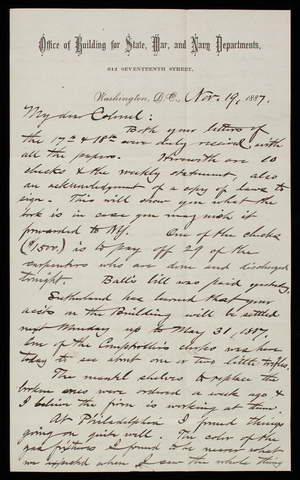 Office of Building for State, War, and Navy Departments,
612 SEVENTEENTH STREET,
Washington, D.C., Nov. 19, 1887.
My dear Colonel:
Both your letters of
the 17th & 18th were duly received with
all the papers. Herewith are 10
checks & the weekly statement, also
an acknowledgment of a copy of laws to
sign. This will show you what the
book is in case you may wish it
forwarded to NY. One of the checks
($1500.) is to pay off 29 of the
carpenters who are done and discharged
tonight. Ball's bill was paid yesterday.
Sutherland has learned that your
accts on the Building will be settled
next Monday up to May 31, 1887.
One of the Comptroller's clerks was here
today to see about one or two little trifles.
The mantel shelves to replace the
broken ones were ordered a week ago &
I believe the firm is working at them.
At Philadelphia I found things
going on quite well. The color of the
gas fixtures I found to be nearer what
we expected when I saw the whole thing